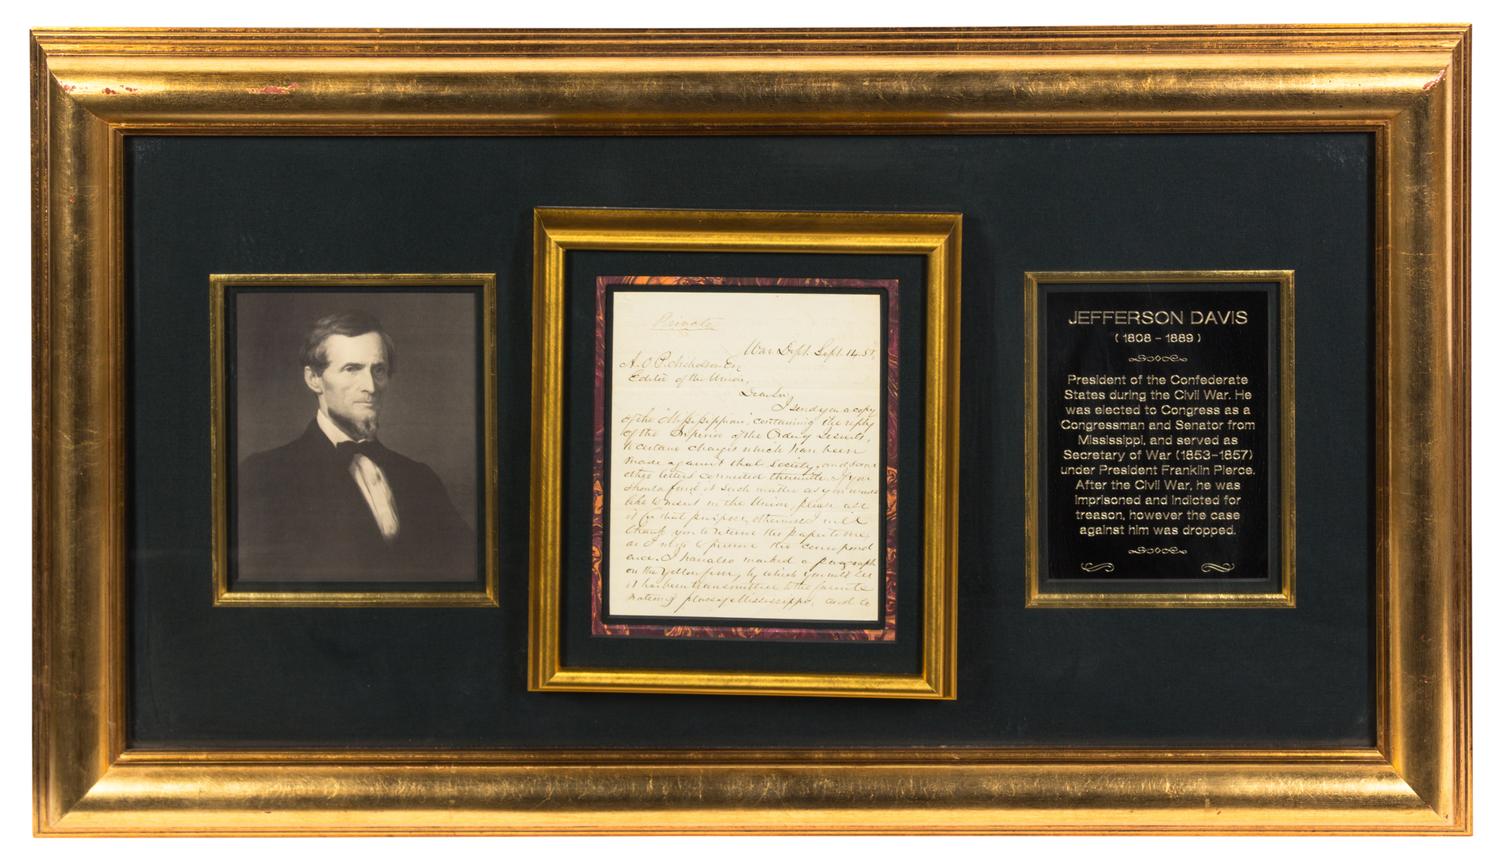 Private
War Dept. Sept. 14. 55,
A. O. P. Nicholson Esq
Editor of the Union,
Dear Sir,
I send you a copy
of the Mississippian, containing the reply
of the of the
certain charges which have been
made against that Society, and some
other letters connected therewith. If you
should find it such matter as you would
like to insert in the Union, please use
it for that purpose, otherwise I will
thank you to return the paper to me,
as I wish to preserve the correspond
ence. I have also marked a paragraph
on the Yellow fever, by which you will see
it has been transmitted to the
place of Mississippi, and to
JEFFERSON DAVIS
( 1808 - 1889 )
President of the Confederate
States during the Civil War. He
was elected to Congress as a
Congressman and Senator from
Mississippi, and served as
Secretary of War (1853-1857)
under President Franklin Pierce.
After the Civil War, he was
imprisoned and indicted for
treason, however the case
against him was dropped.